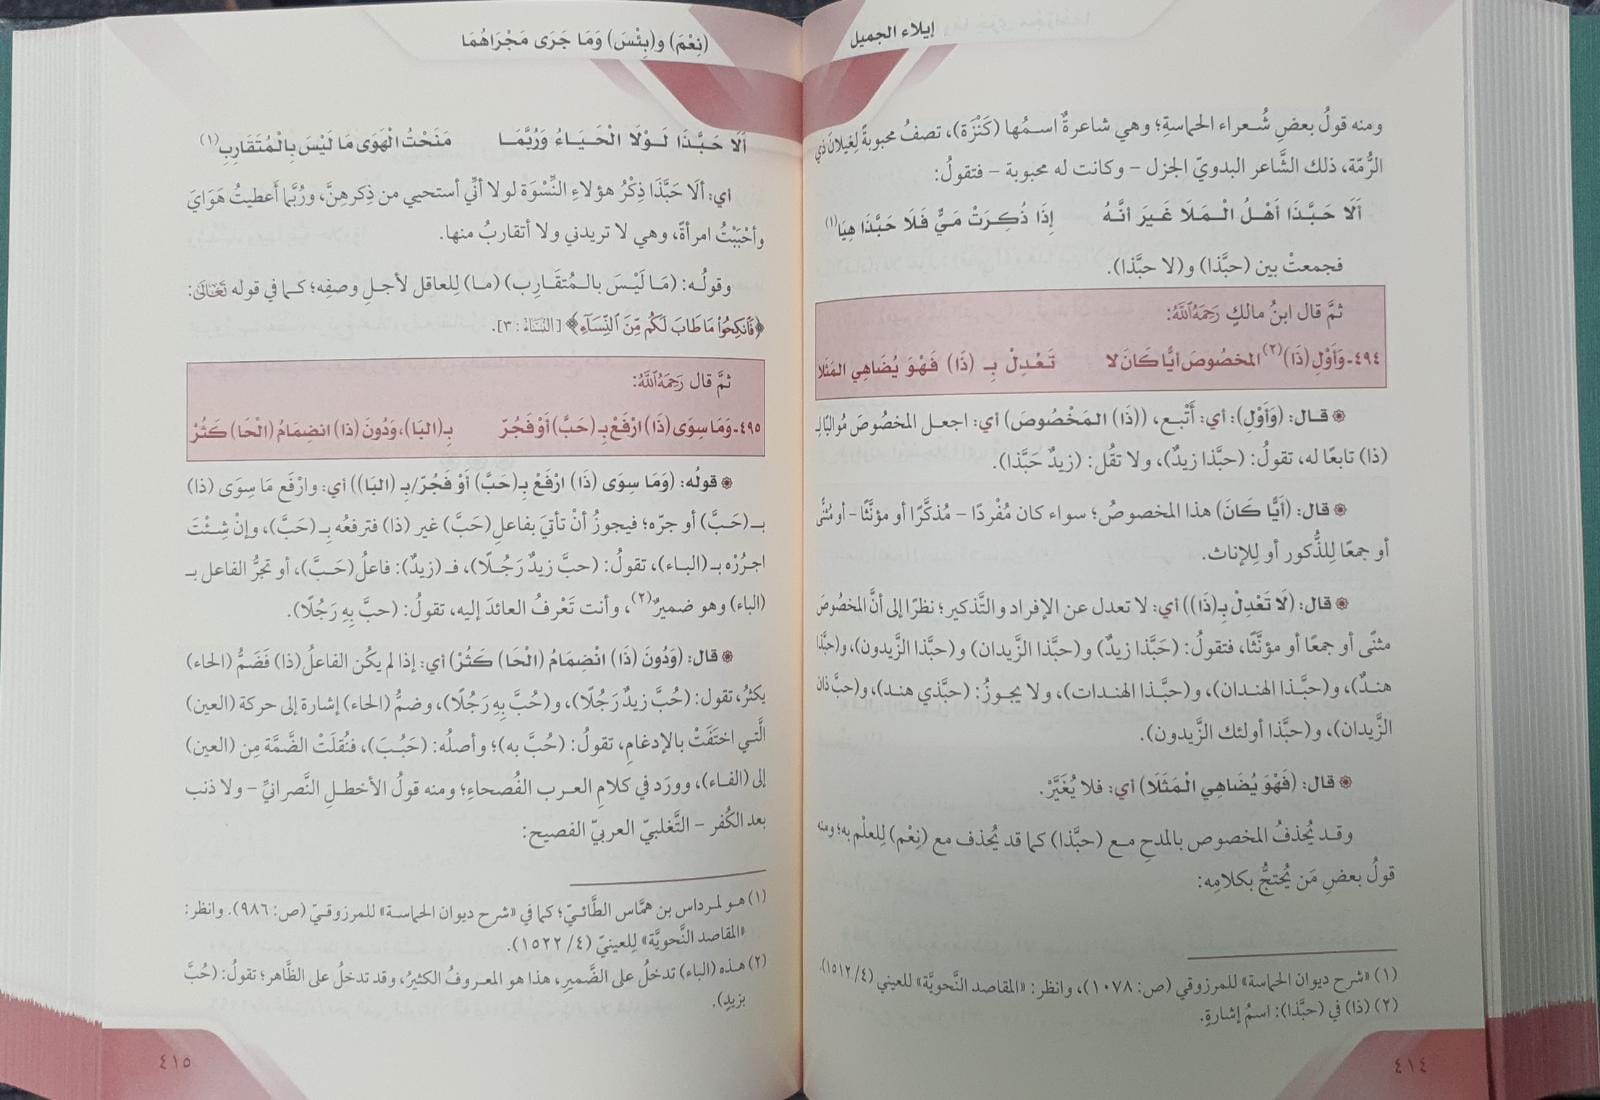 إيلاء الجميل
ومنه قولُ بعضِ شُعراء الحماسةِ؛ وهي شاعرةٌ اسمُها (كَنْزَة)، تصفُ محبوبةً لِغيلانَ ذي
الرُّمّة، ذلك الشَّاعر البدويّ الجزل – وكانت له محبوبة – فتقولُ:
أَلَا حَبَّذَا أَهْلُ الْمَلَا غَيرَ أنَّهُ إِذَا ذُكِرَتْ مَيٌّ فَلَا حَبَّذَا هِيَا(١)
فجمعتْ بين (حبَّذا) و(لا حبَّذا).
ثمَّ قال ابنُ مالكٍ رَحِمَهُ اللَّهُ:
٤٩٤- وَأَوْلِ (ذَا)(٢) المخصُوصَ أيًّا كَانَ لا تَعْدِلْ بِـ (ذَا) فَهْوَ يُضَاهِي المَثَلَا
قال: (وَأَوْلِ): أي: أَتْبع، ((ذَا) المَخْصُوصَ) أي: اجعل المخصُوصَ مُواليًا لِـ
(ذا) تابعًا له، تقولُ: (حبَّذا زيدٌ)، ولا تقُل: (زيدٌ حَبَّذا).
قال: (أيًّا كَانَ) هذا المخصوصُ؛ سواء كان مُفْردًا – مُذكَّرًا أو مؤنَّثًا – أو مُثنًّى
أو جمعًا لِلذُّكور أو لِلإناث.
قال: (لَا تَعْدِلْ بِـ(ذَا)) أي: لا تعدل عن الإفراد والتَّذكير؛ نظرًا إلى أنَّ المخصُوصَ
مثنًّى أو جمعًا أو مؤنَّثًا، فتقولُ: (حَبَّذا زيدٌ) و(حبَّذا الزَّيدان) و(حبَّذا الزَّيدون)، و(حبَّذا
هندٌ)، و(حبَّذا الهندان)، و(حبَّذا الهندات)، ولا يجوزُ: (حبَّذي هند)، و(حبَّ ذان
الزَّيدان)، و(حبَّذا أولئك الزَّيدون).
قال: (فَهْوَ يُضَاهِي الْمَثَلَا) أي: فلا يُغَيَّرْ.
وقد يُحذفُ المخصوص بالمدحِ مع (حبَّذا) كما قد يُحذف مع (نِعْم) لِلعلْم به؛ ومنه
قولُ بعضِ مَن يُحتجُّ بكلامِه:
(١) «شرح ديوان الحماسة» للمرزوقي (ص: ١٠٧٨)، وانظر: «المقاصد النَّحويَّة» للعيني (٤/ ١٥١٢).
(٢) (ذا) في (حبَّذا): اسمُ إشارةٍ.
٤١٤
(نِعْمَ) و(بِئْسَ) وَمَا جَرَى مَجْرَاهُمَا
أَلَا حَبَّذَا لَوْلَا الْحَيَاءُ وَرُبَّمَا مَنَحْتُ الْهَوَى مَا لَيْسَ بِالْمُتَقَارِبِ(١)
أي: ألَا حَبَّذَا ذِكْرُ هؤلاءِ النِّسْوَة لولا أنِّي أستحيي من ذِكرهِنَّ، ورُبَّما أَعطيتُ هَوَايَ
وأحْبَبْتُ امرأةً، وهي لا تريدني ولا أتقاربُ منها.
وقولُه: (مَا لَيْسَ بالمُتقَارِب) (ما) لِلعاقل لأجلِ وصفِه؛ كما في قوله تَعَالَى:
﴿فَانكِحُوا۟ مَا طَابَ لَكُم مِّنَ ٱلنِّسَآءِ﴾ [النساء: ٣].
ثمَّ قال رَحِمَهُ اللَّهُ:
٤٩٥- وَمَا سِوَى (ذَا) ارْفَعْ بِـ (حَبَّ) أَوْ فَجُرّ بِـ(البَا)، وَدُونَ (ذَا) انضِمَامُ (الْحَا) كَثُرْ
قولُه: (وَمَا سِوَى (ذَا) ارْفَعْ بِـ(حَبَّ) أوْ فَجُرّ/بِـ (البَا)) أي: وارْفَع مَا سِوَى (ذا)
بـ (حَبَّ) أو جرّه؛ فيجوزُ أنْ تأتيَ بفاعلِ (حَبَّ) غير (ذا) فترفعُه بِـ (حَبَّ)، وإنْ شِئْتَ
اجرُرْه بـ (الباء)، تقولُ: (حبَّ زيدٌ رَجُلًا)، فـ (زيدٌ): فاعلُ (حَبَّ)، أو تجرُّ الفاعل بـ
(الباء) وهو ضميرٌ(٢)، وأنت تَعْرفُ العائدَ إليه، تقولُ: (حبَّ بِهِ رَجُلًا).
قال: (وَدُونَ (ذَا) انْضِمَامُ (الْحَا) كَثُرْ) أي: إذا لم يكُن الفاعلُ (ذا) فَضَمُّ (الحاء)
يكثرُ، تقول: (حُبَّ زيدٌ رَجُلًا)، و(حُبَّ بِهِ رَجُلًا)، وضمُّ (الحاء) إشارة إلى حركة (العين)
الَّتي اختَفَتْ بالإدغامِ، تقولُ: (حُبَّ به)؛ وأصلُه: (حَبُبَ)، فنُقلَتْ الضَّمَّة مِن (العين)
إلى (الفاء)، وورَد في كلامِ العرب الفُصحاءِ؛ ومنه قولُ الأخطلِ النَّصرانيّ – ولا ذنب
بعد الكُفر – التَّغلبيّ العربيّ الفصيح:
(١) هو لمرداس بن همَّاس الطَّائيّ؛ كما في «شرح ديوان الحماسة» للمرزوقيّ (ص: ٩٨٦). وانظر:
«المقاصد النَّحويَّة» لِلعينيّ (٤/ ١٥٢٢).
(٢) هذه (الباء) تدخلُ على الضَّميرِ، هذا هو المعروفُ الكثيرُ، وقد تدخلُ على الظَّاهر؛ تقولُ: (حُبَّ
بزيدٍ).
٤١٥